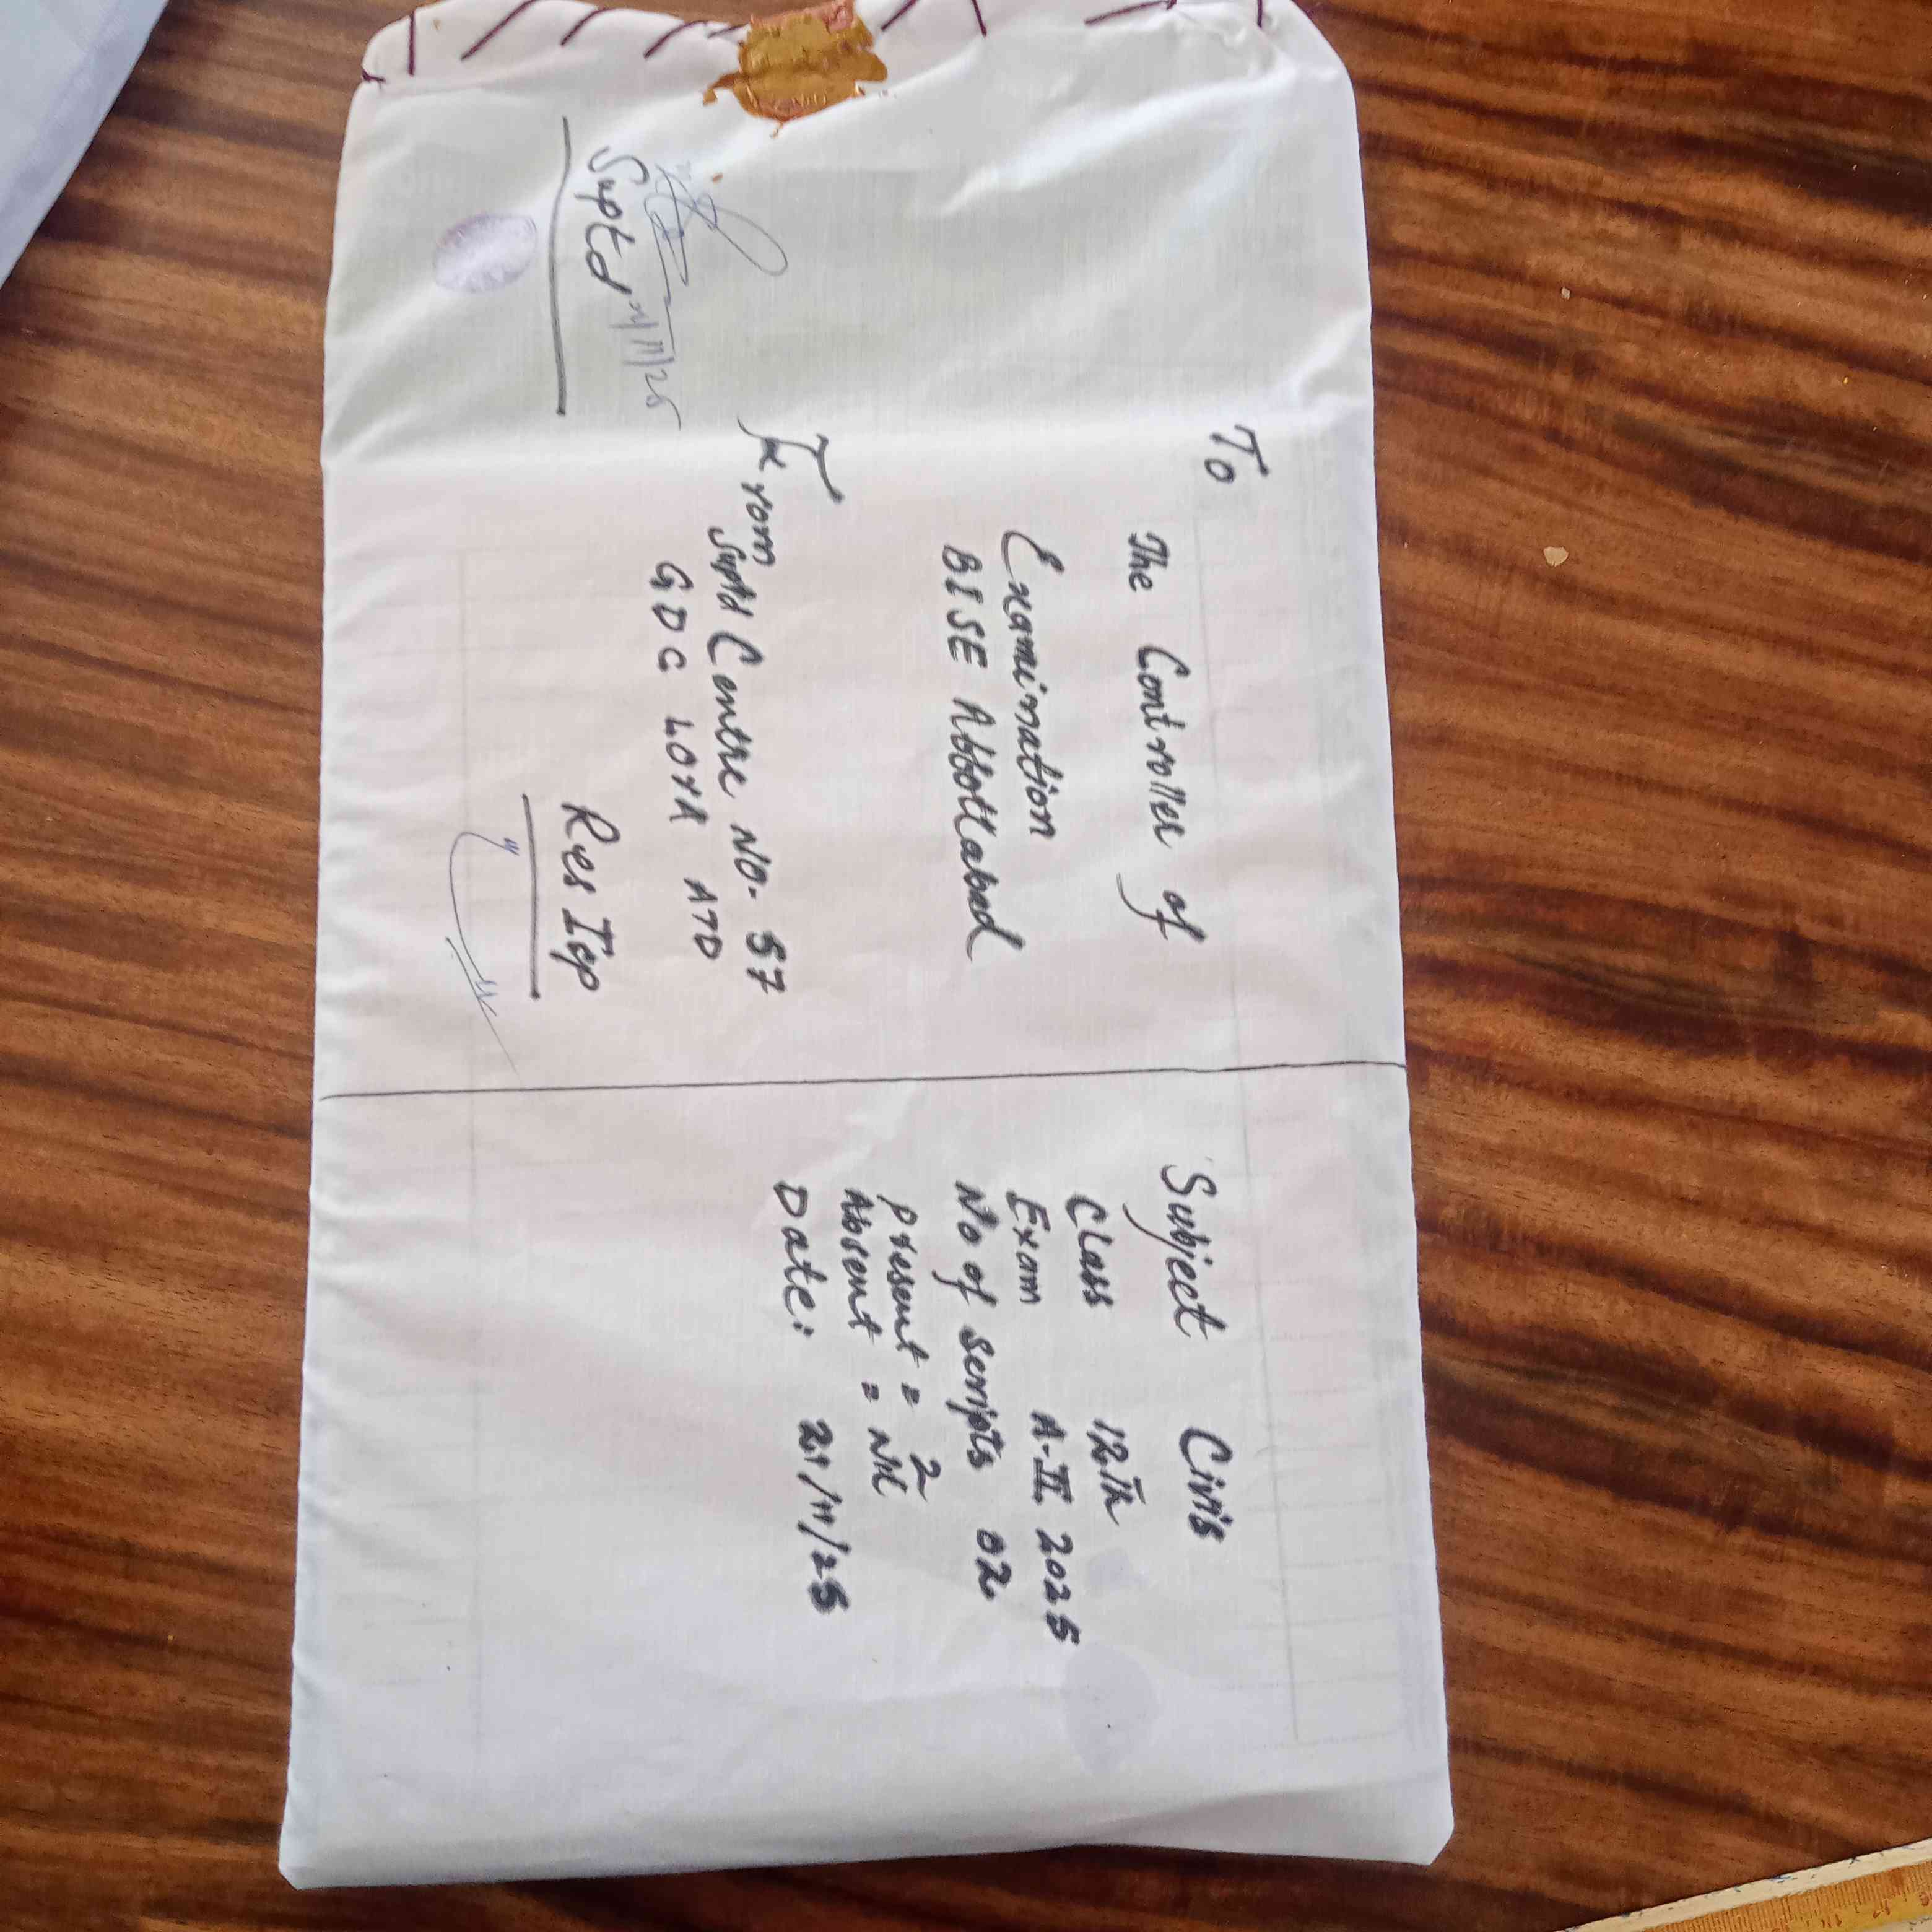 To
The Controller of
Examination
BISE Abbottabad
From
Suptd Centre NO. 57
GDC LORA ATD
Suptd
Res Isp
Subject Civis
Class 12th
Exam A-II 2025
No of scripts 02
Present = 2
Absent = Nil
Date: 21/11/25